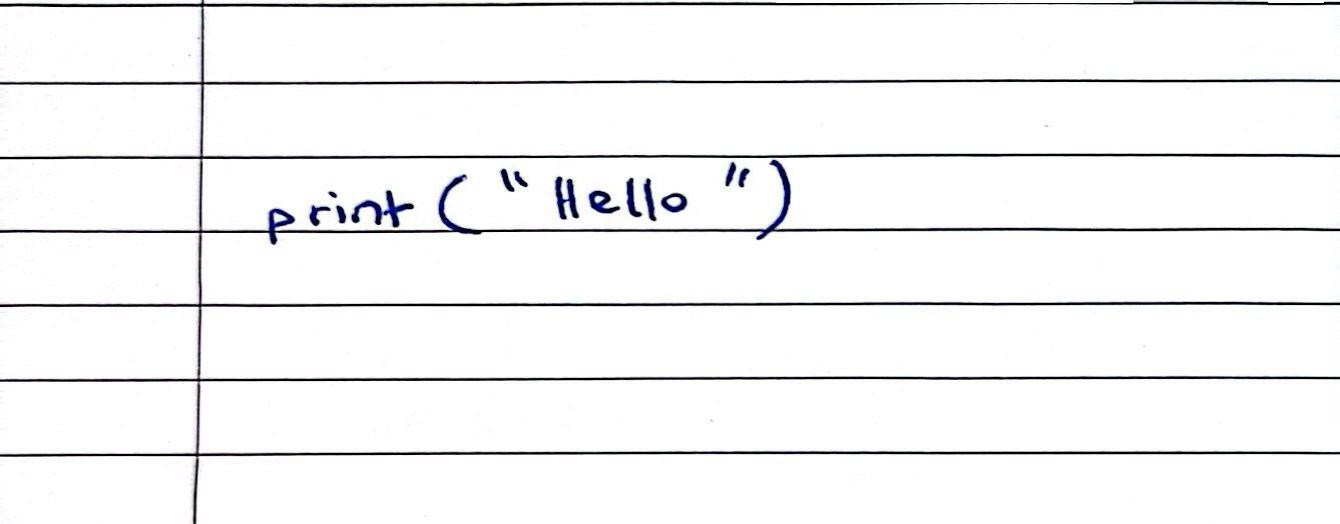 print ("Hello")